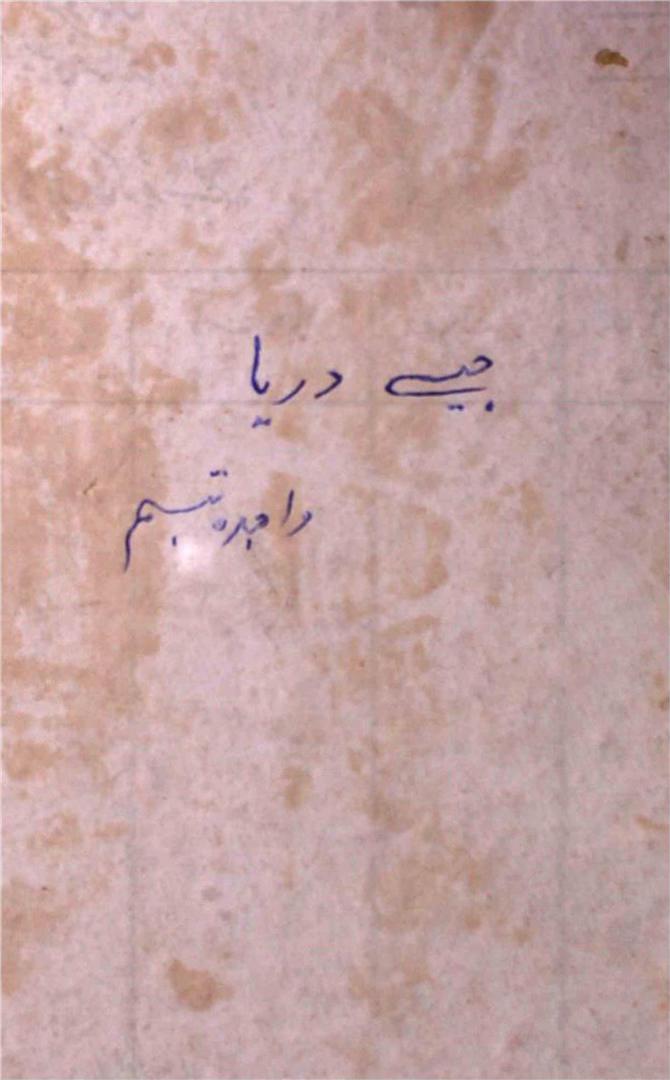 جیسے دریا
واجدہ تبسم